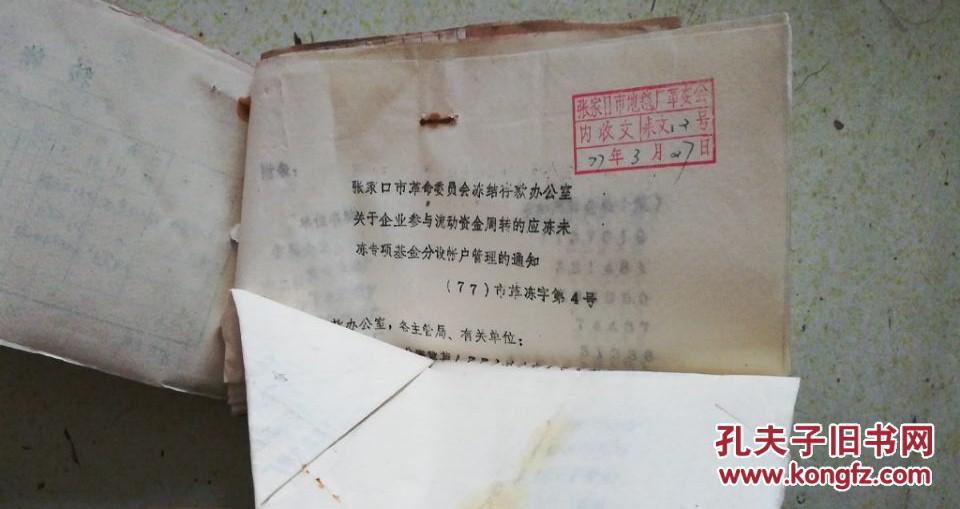 张家口市地毯厂革委会
内收文 字 号
77年3月27日
张家口市革命委员会冻结存款办公室
关于企业参与流动资金周转的应冻未
冻专项基金分设帐户管理的通知
(77)市革冻字第4号
办公室,各主管局、有关单位:
孔夫子旧书网
www.kongfz.com